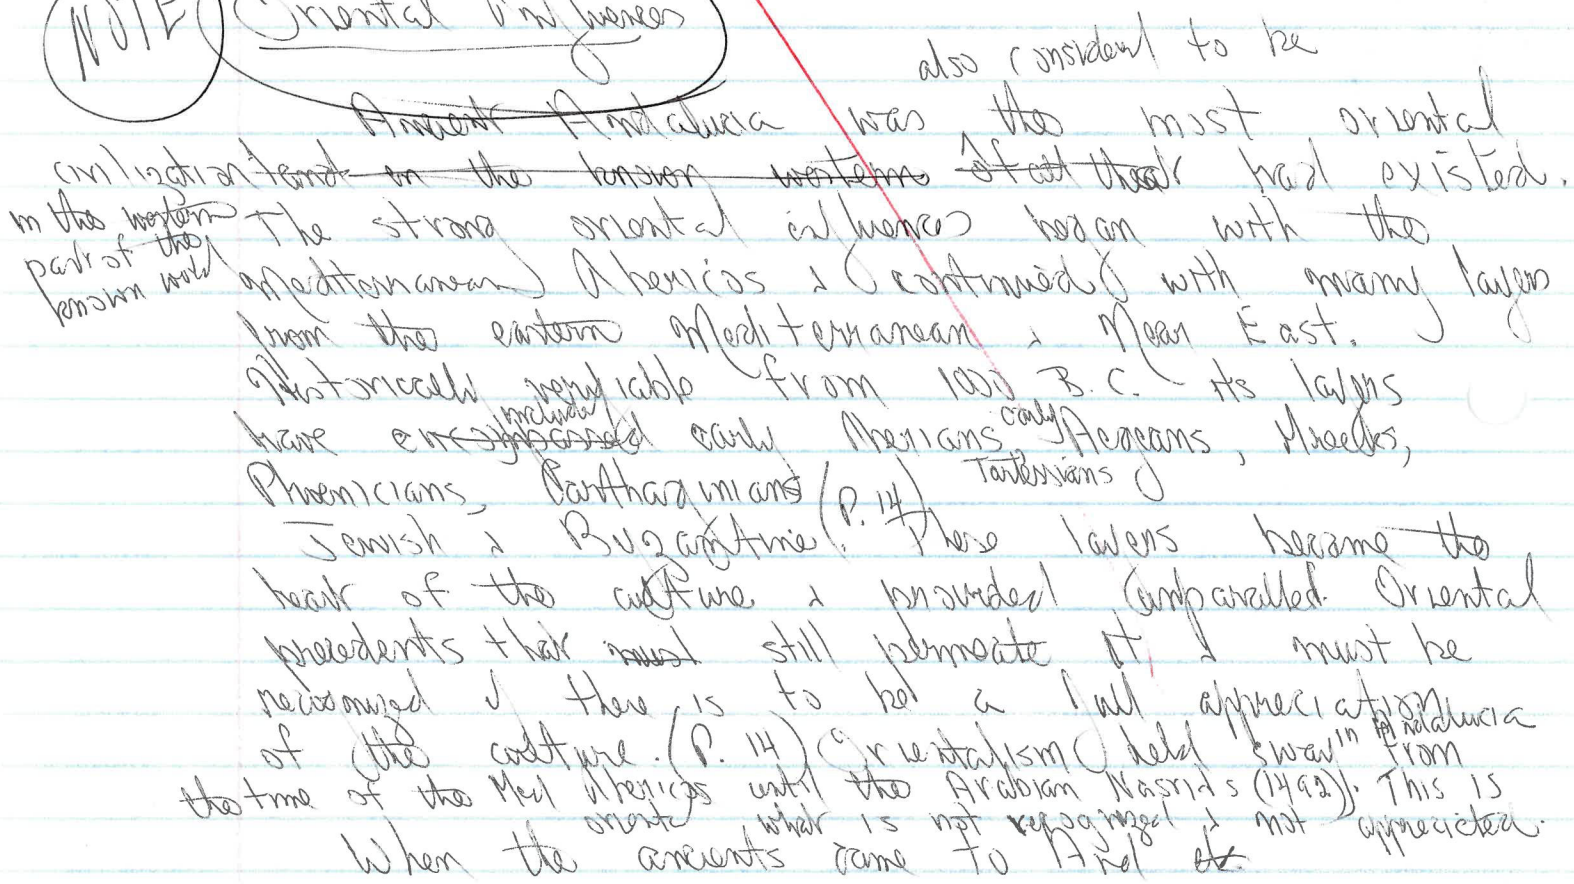 NOTE Oriental Influences
also considerd to be
Ancient Andalucia was the most oriental
civilization and in the known western of all that had existed.
in the western
part of the
known world
The strong oriental influences began with the
Mediterranean Ibericos & continued with many layers
from the eastern Mediterranean & Near East.
Historically verifiable from 1000 B.C. its layers
included
have encompassed early Iberians, early Aegeans, Greeks,
Tartessians
Phoenicians, Carthaginians (P. 14)
Jewish & Byzantine. These layers became the
heart of the culture & provided unparalled Oriental
precedents that must still permeate it & must be
recognized if there is to be a full appreciation
of the culture. (P. 14) Orientalism held sway in Andalucia from
the time of the Med Ibericos until the Arabian Nasrids (1492). This is
orient what is not recognized & not appreciated.
When the ancients came to And